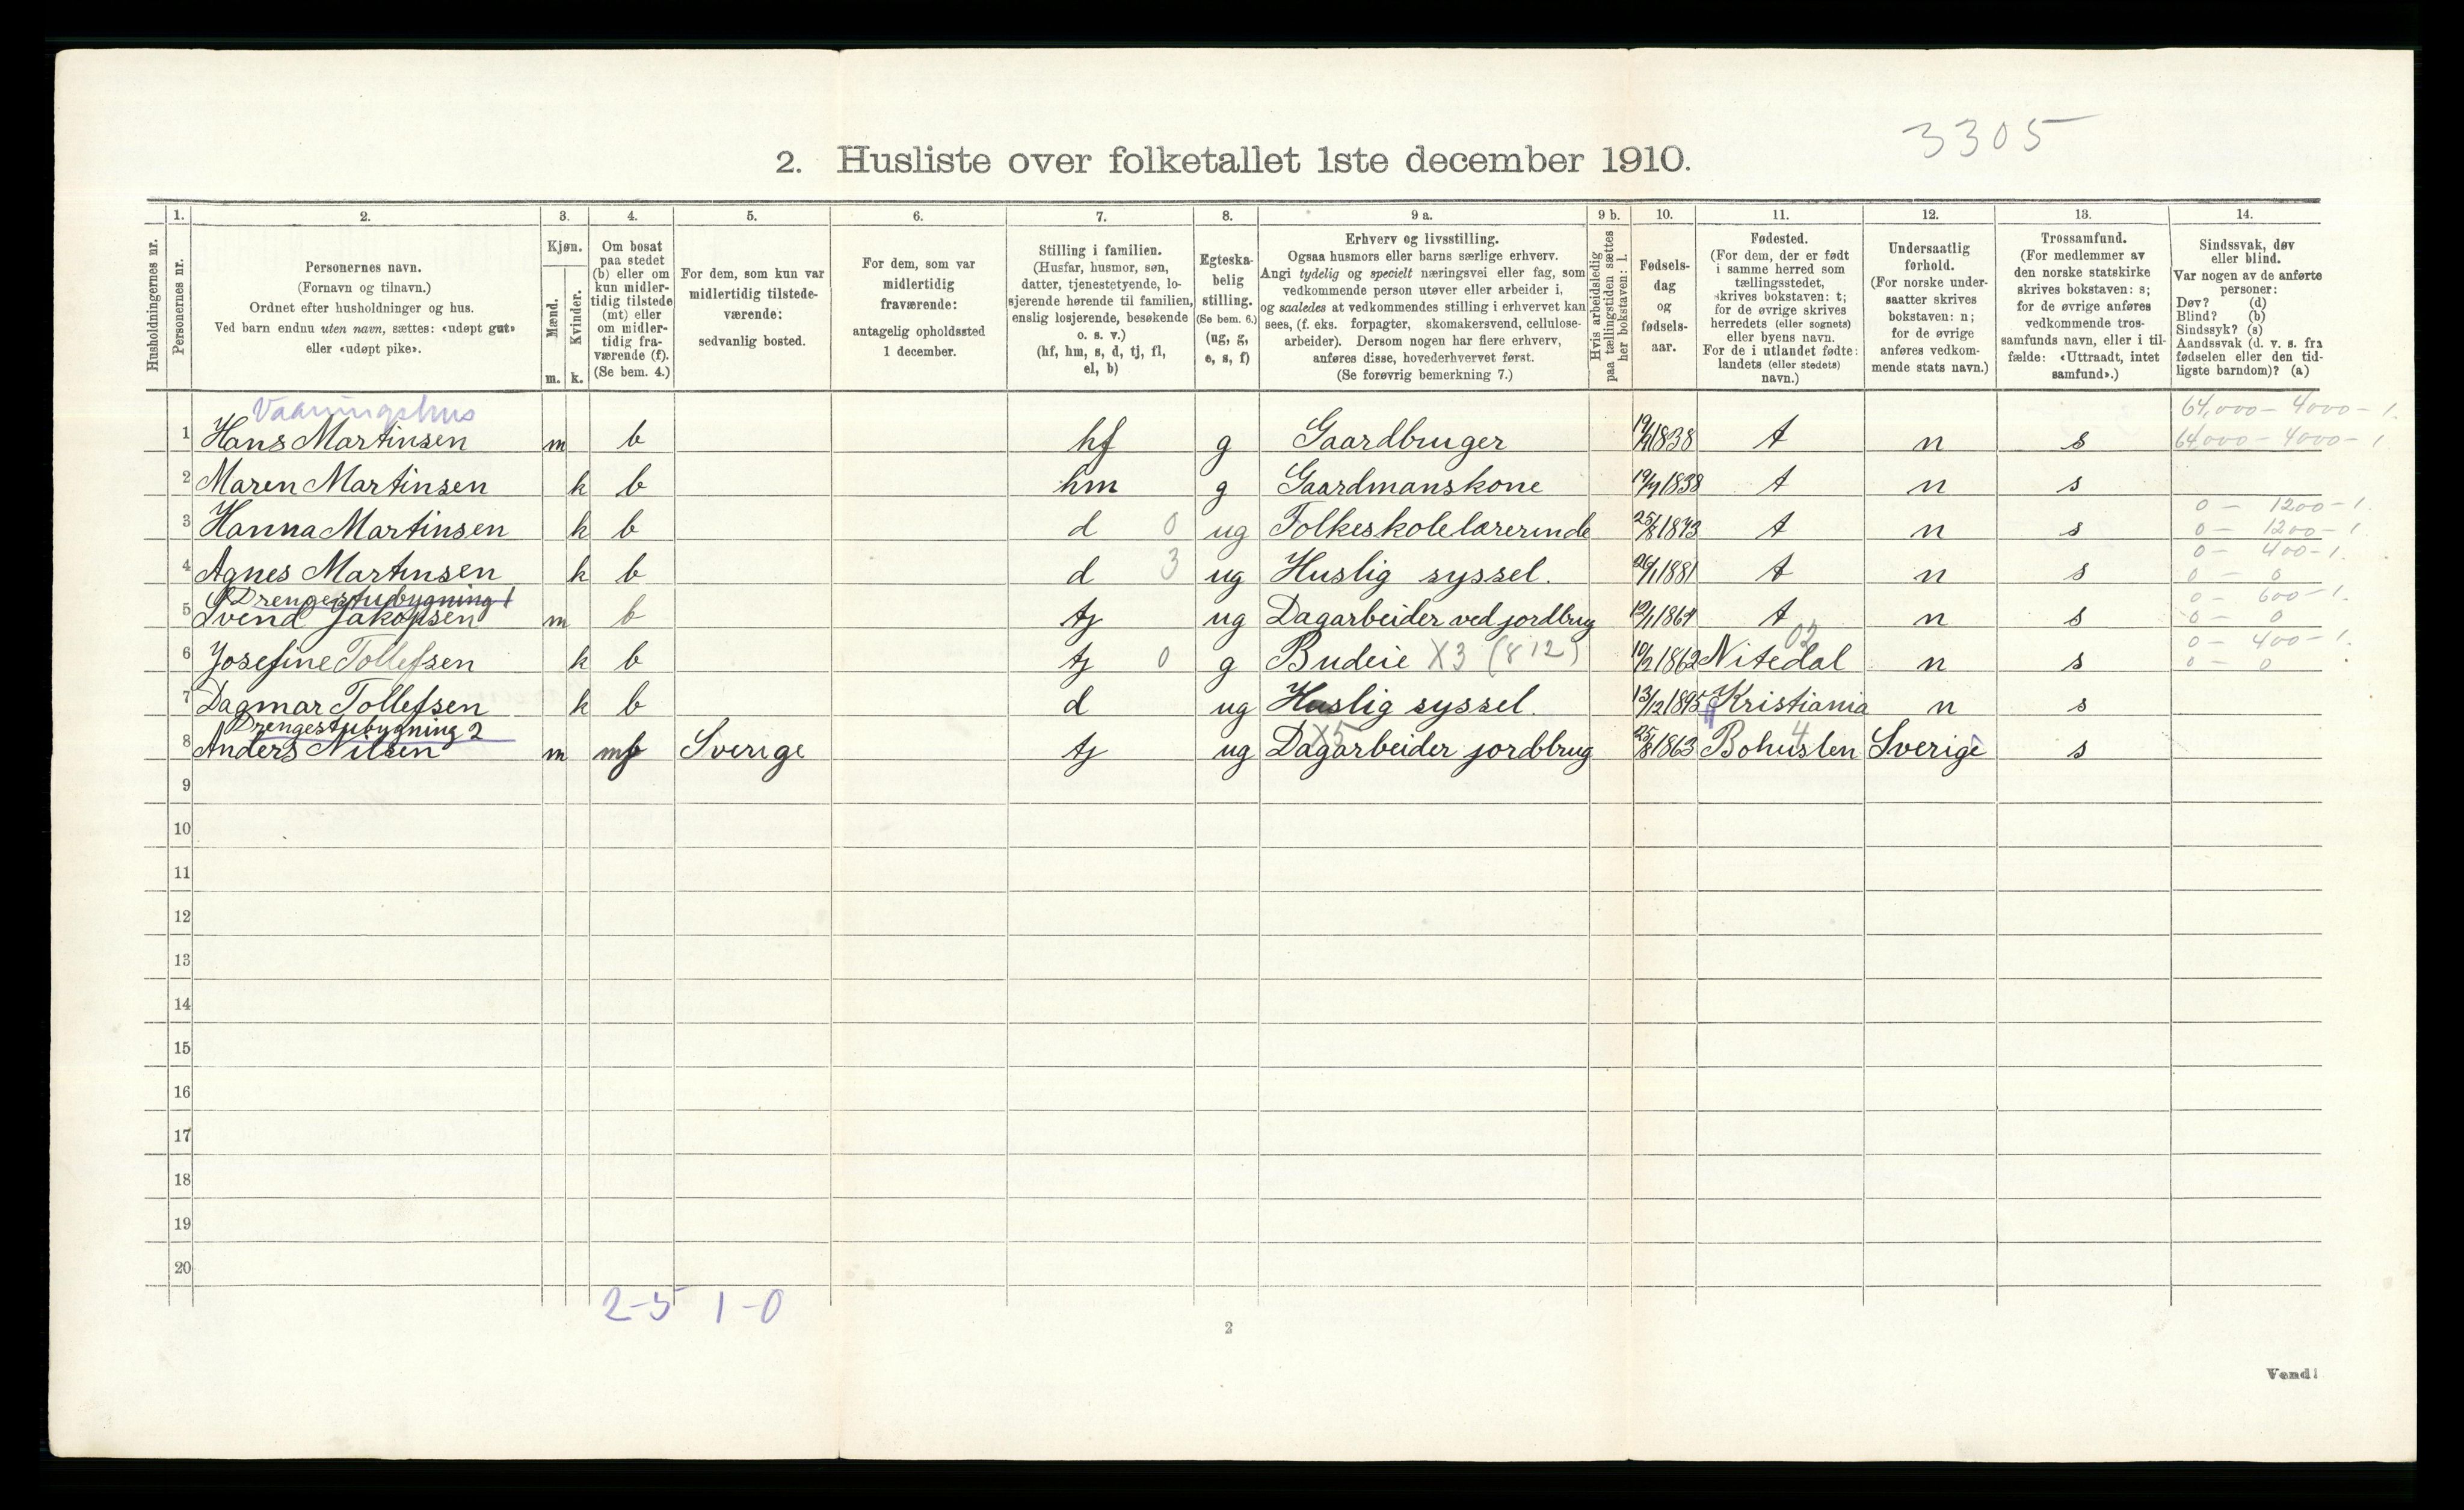 3305
2. Husliste over folketallet 1ste december 1910.
Husholdningernes nr.
1. Personernes nr.
2. Personernes navn.
(Fornavn og tilnavn.)
Ordnet efter husholdninger og hus.
Ved barn endnu uten navn, sættes: «udøpt gut»
eller «udøpt pike».
3. Kjøn.
Mænd. m.
Kvinder. k.
4. Om bosat
paa stedet
(b) eller om
kun midler-
tidig tilstede
(mt) eller
om midler-
tidig fra-
værende (f).
(Se bem. 4.)
5. For dem, som kun var
midlertidig tilstede-
værende:
sedvanlig bosted.
6. For dem, som var
midlertidig
fraværende:
antagelig opholdssted
1 december.
7. Stilling i familien.
(Husfar, husmor, søn,
datter, tjenestetyende, lo-
sjerende hørende til familien,
enslig losjerende, besøkende
o. s. v.)
(hf, hm, s, d, tj, fl,
el, b)
8. Egteska-
belig
stilling.
(Se bem. 6.)
(ug, g,
e, s, f)
9 a. Erhverv og livsstilling.
Ogsaa husmors eller barns særlige erhverv.
Angi tydelig og specielt næringsvei eller fag, som
vedkommende person utøver eller arbeider i,
og saaledes at vedkommendes stilling i erhvervet kan
sees, (f. eks. forpagter, skomakersvend, cellulose-
arbeider). Dersom nogen har flere erhverv,
anføres disse, hovederhvervet først.
(Se forøvrig bemerkning 7.)
9 b. Hvis arbeidsledig
paa tællingstiden sættes
her bokstaven: l.
10. Fødsels-
dag
og
fødsels-
aar.
11. Fødested.
(For dem, der er født
i samme herred som
tællingsstedet,
skrives bokstaven: t;
for de øvrige skrives
herredets (eller sognets)
eller byens navn.
For de i utlandet fødte:
landets (eller stedets)
navn.)
12. Undersaatlig
forhold.
(For norske under-
saatter skrives
bokstaven: n;
for de øvrige
anføres vedkom-
mende stats navn.)
13. Trossamfund.
(For medlemmer av
den norske statskirke
skrives bokstaven: s;
for de øvrige anføres
vedkommende tros-
samfunds navn, eller i til-
fælde: «Uttraadt, intet
samfund».)
14. Sindssvak, døv
eller blind.
Var nogen av de anførte
personer:
Døv? (d)
Blind? (b)
Sindssyk? (s)
Aandssvak (d. v. s. fra
fødselen eller den tid-
ligste barndom)? (a)
Vaaningshus 64,000 - 4000 - 1.
1 Hans Martinsen m b hf g Gaardbruger 1838 t n s 64000 - 4000 - 1
2 Maren Martinsen k b hm g Gaardmanskone 1838 t n s
0 - 1200 - 1.
3 Hanna Martinsen k b d 0 ug Folkeskolelærerinde 1873 t n s 0 - 1200 - 1
0 - 400 - 1.
4 Agnes Martinsen k b d 3 ug Huslig syssel. 1881 t n s 0 - 0
Drengestubygning 1 0 - 600 - 1.
5 Svend Jakopsen m b tj ug Dagarbeider ved jordbrug 12/1 1864 t n s 0 - 0
02 0 - 400 - 1.
6 Josefine Tollefsen k b tj 0 g Budeie X3 (812) 10/2 1862 Nitedal n s 0 - 0
7 Dagmar Tollefsen k b d ug Huslig syssel. 13/12 1895 Kristiania n s
Drengestubygning 2 X5 4
8 Anders Nilsen m Sverige tj ug Dagarbeider jordbrug 25/8 1863 Bohuslen Sverige s
9
10
11
12
13
14
15
16
17
18
19
20
2-5 1-0
2
Vend!